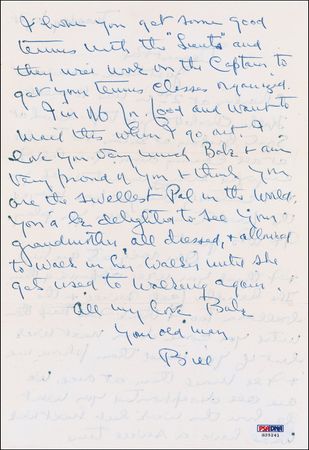 I hope you get some good
tennis with the "Lieuts" and
they will work on the Captain to
get your tennis classes organized.
I'm No 1 in and want to
mail this when I go out. I
love you very much Babe & am
very proud of you & think you
are the swellest Pal in the world.
You'd be delighted to see your
grandmother, all dressed, & allowed
to walk in her walker until she
get used to walking again.
All my love Babe
Your old man
Bill
PSA/DNA